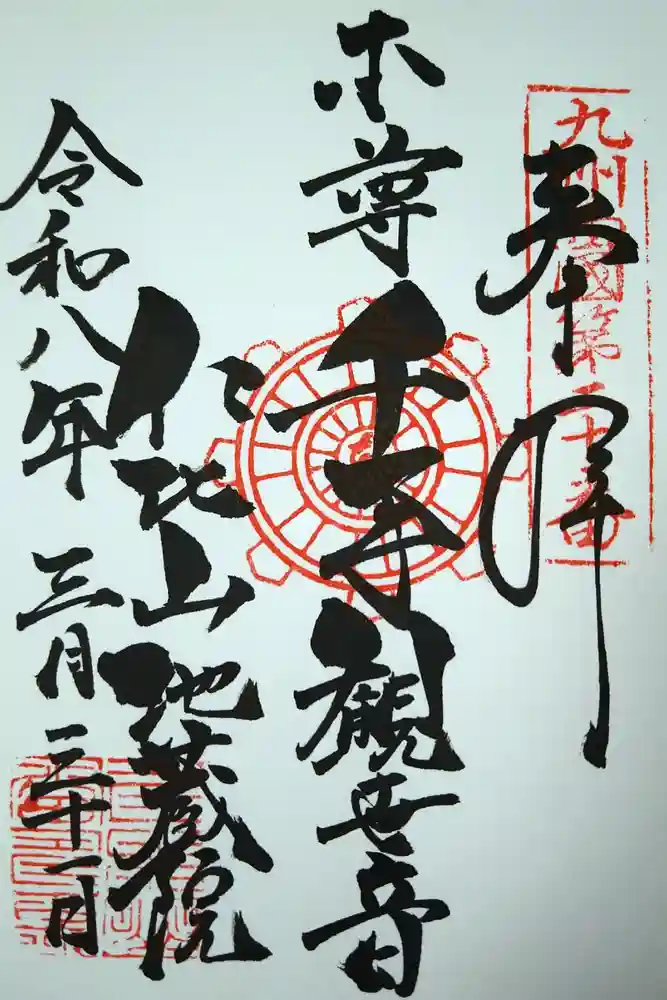 奉拝
九州西国第二十番
本尊
千手観世音
仁比山地蔵院
令和八年三月三十一日